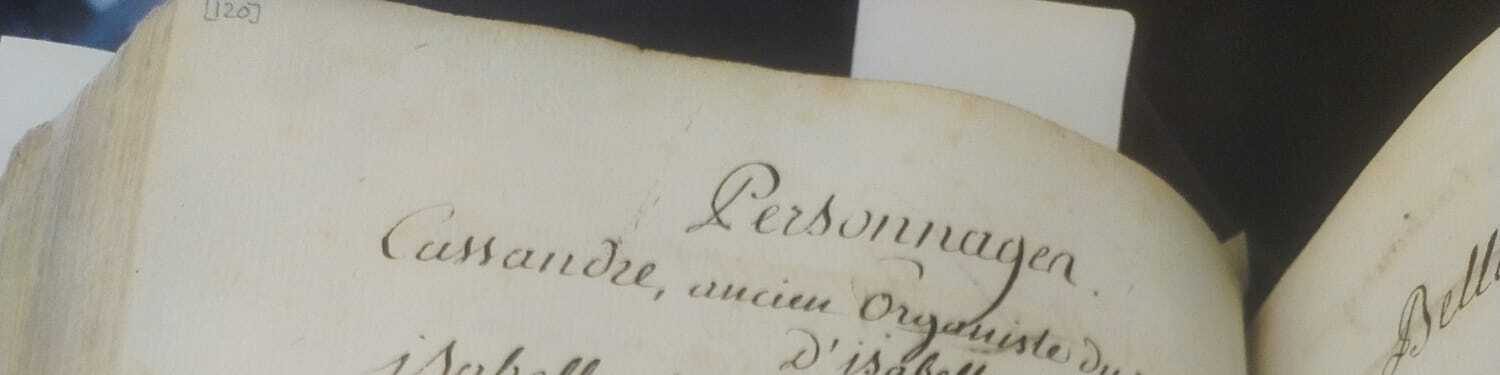 [120]
Personnages.
Cassandre, ancien Organiste du
isabelle D'isabell
Bell